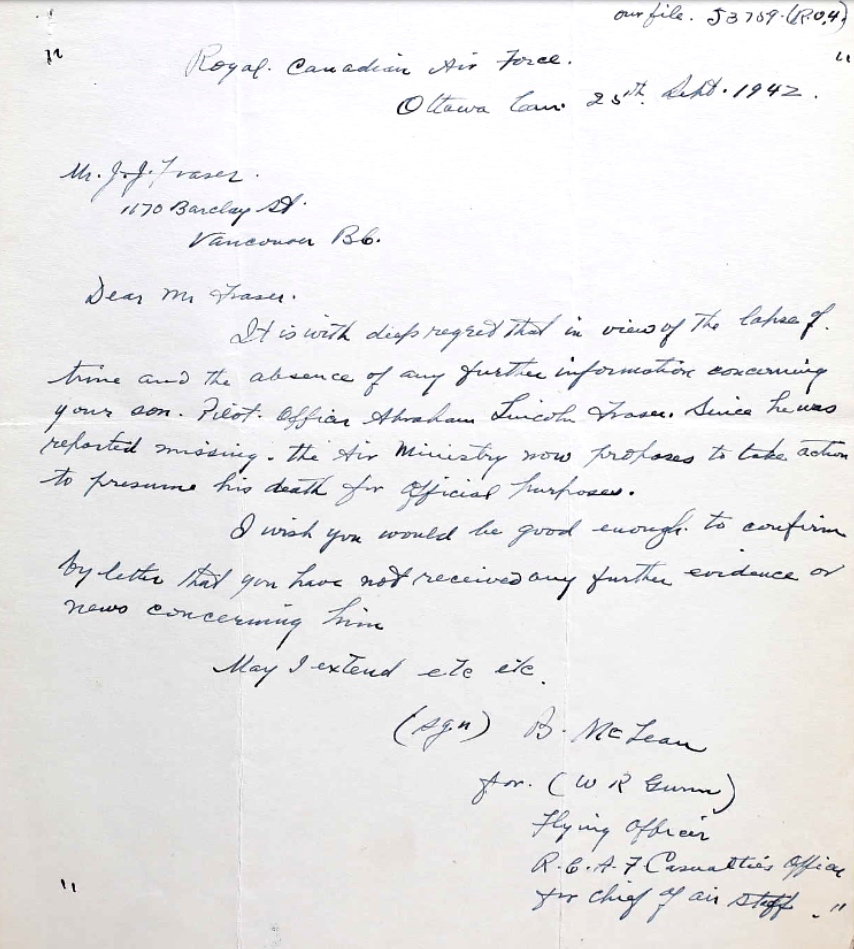 our file. J3709.(R.O.4)
" "
Royal. Canadian Air Force.
Ottawa Can. 25th. Sept. 1942.
Mr. J. J. Fraser.
1170 Barclay St.
Vancouver B.C.
Dear Mr Fraser.
It is with deep regred that in view of the lapse of.
time and the absence of any further information concerning
your son. Pilot. Officer Abraham Lincoln Fraser. Since he was
reported missing. the Air Ministry now proposes to take action
to presume his death for official purposes.
I wish you would be good enough. to confirm
by letter that you have not received any further evidence or
news concerning him
May I extend etc etc.
(sgn) B. McLean
for. (W R Gunn)
Flying Officer
R.C.A.F Casualties Officer
for chief of air staff. "
"